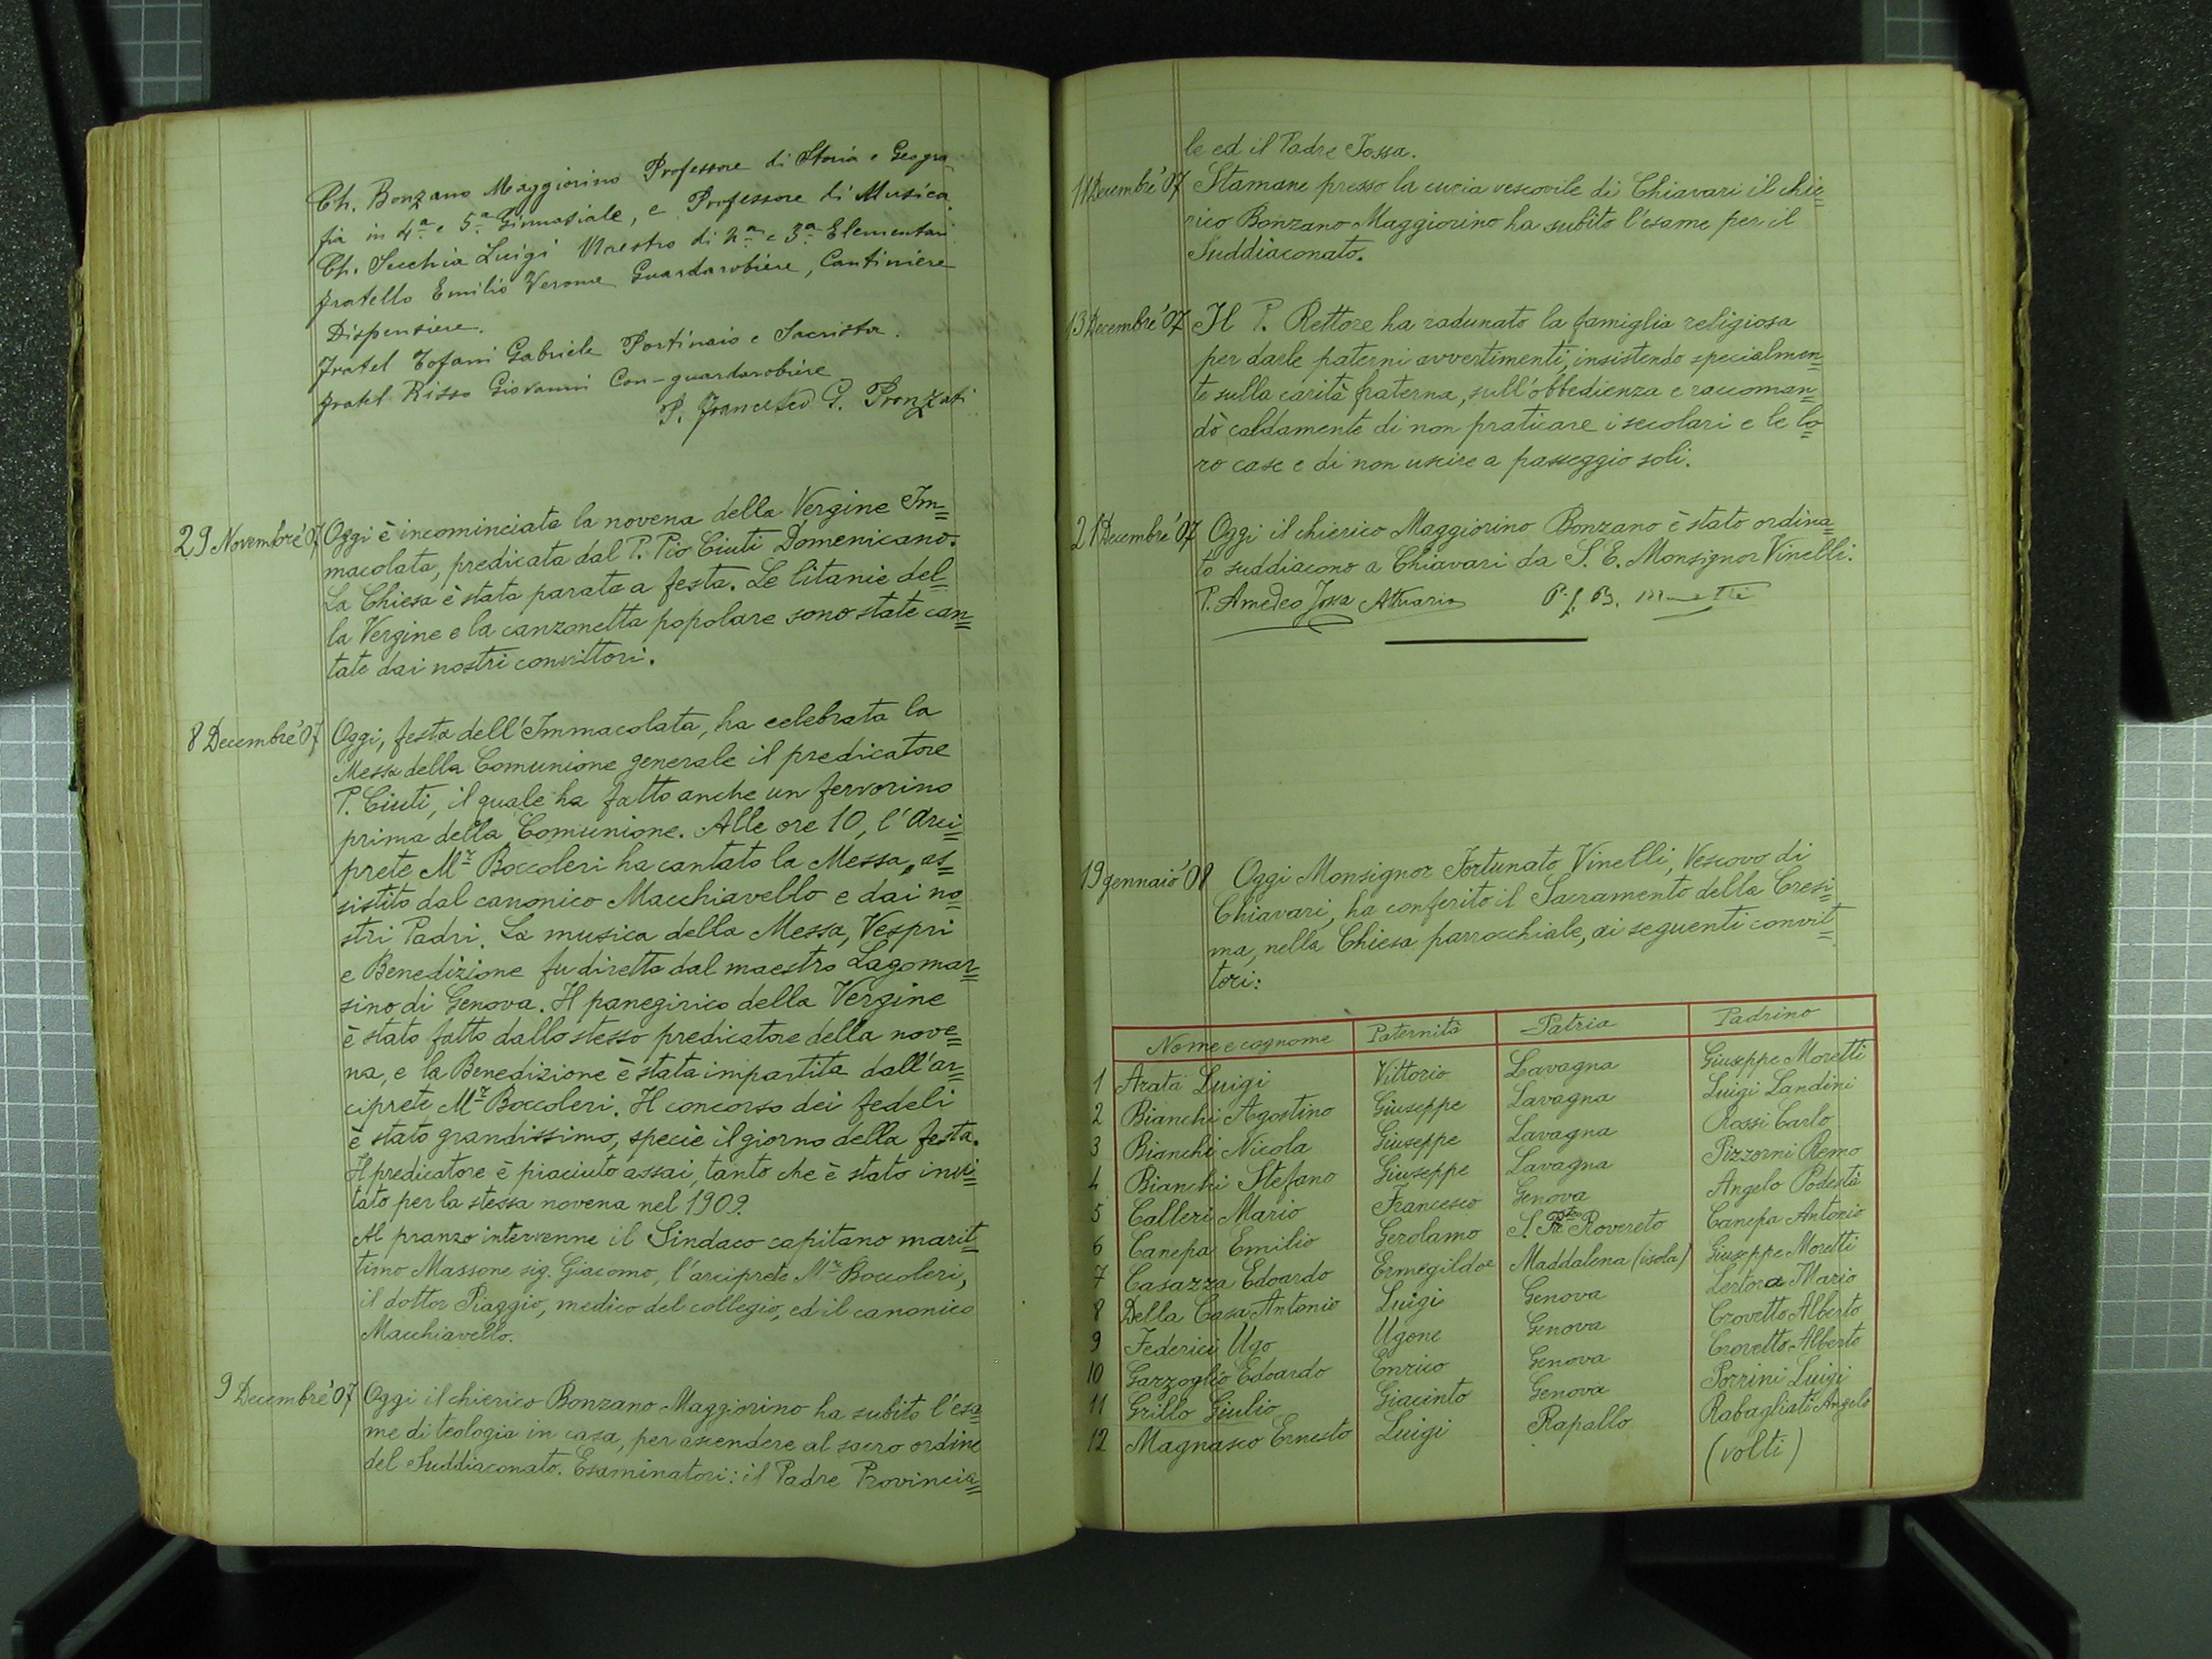 Ch. Bonzano Maggiorino Professore di Storia e Geogra
fia in 4ª e 5ª Ginnasiale, e Professore di Musica.
Ch. Secchia Luigi Maestro di 2ª e 3ª Elementari
Fratello Emilio Verome Guardarobiere, Cantiniere
Dispensiere.
Fratel Tofani Gabriele Portinaio e Sacrista.
Fratel Risso Giovanni Con-guardarobiere
P. Francesco G. Pronzati
29 Novembre '07 Oggi è incominciata la novena della Vergine Im=
macolata, predicata dal P. Pio Ciuti Domenicano.
La Chiesa è stata parata a festa. Le litanie del=
la Vergine e la canzonetta popolare sono state can=
tate dai nostri convittori.
8 Decembre '07 Oggi, festa dell'Immacolata, ha celebrata la
Messa della Comunione generale il predicatore
P. Ciuti, il quale ha fatto anche un fervorino
prima della Comunione. Alle ore 10, l'Arci=
prete Mr Boccoleri ha cantato la Messa, as=
sistito dal canonico Macchiavello e dai no=
stri Padri. La musica della Messa, Vespri
e Benedizione fu diretta dal maestro Lagomar=
sino di Genova. Il panegirico della Vergine
è stato fatto dallo stesso predicatore della nove=
na, e la Benedizione è stata impartita dall'ar=
ciprete Mr Boccoleri. Il concorso dei fedeli
è stato grandissimo, specie il giorno della festa.
Il predicatore è piaciuto assai, tanto che è stato invi=
tato per la stessa novena nel 1909.
Al pranzo intervenne il Sindaco capitano marit=
timo Massone sig. Giacomo, l'arciprete Mr Boccoleri,
il dottor Piaggio, medico del collegio, ed il canonico
Macchiavello.
9 Decembre '07 Oggi il chierico Bonzano Maggiorino ha subito l'esa=
me di teologia in casa, per ascendere al sacro ordine
del Suddiaconato. Esaminatori: il Padre Provincia=
le ed il Padre Jossa.
11 Decembre '07 Stamane presso la curia vescovile di Chiavari il chie=
rico Bonzano Maggiorino ha subito l'esame per il
Suddiaconato.
13 Decembre '07 Il P. Rettore ha radunato la famiglia religiosa
per darle paterni avvertimenti, insistendo specialmen=
te sulla carità fraterna, sull'obbedienza e raccoman=
dò caldamente di non praticare i secolari e le lo=
ro case e di non uscire a passeggio soli.
21 Decembre '07 Oggi il chierico Maggiorino Bonzano è stato ordina=
to suddiacono a Chiavari da S. E. Monsignor Vinelli.
P. Amedeo Jossa Attuario P. f. B.
19 gennaio '08 Oggi Monsignor Fortunato Vinelli, Vescovo di
Chiavari, ha conferito il Sacramento della Cresi=
ma, nella Chiesa parrocchiale, ai seguenti convit=
tori:
Nome e cognome Paternità Patria Padrino
1 Arata Luigi Vittorio Lavagna Giuseppe Moretti
2 Bianchi Agostino Giuseppe Lavagna Luigi Landini
3 Bianchi Nicola Giuseppe Lavagna Rossi Carlo
4 Bianchi Stefano Giuseppe Lavagna Pizzorni Remo
5 Calleri Mario Francesco Genova Angelo Podestà
6 Canepa Emilio Gerolamo S. Ptro Rovereto Canepa Antonio
7 Casazza Edoardo Ermegildoe Maddalena (isola) Giuseppe Moretti
8 Della Casa Antonio Luigi Genova Lertora Mario
9 Federici Ugo Ugone Genova Crovetto Alberto
10 Garzoglio Edoardo Enrico Genova Crovetto Alberto
11 Grillo Giulio Giacinto Genova Porrini Luigi
12 Magnasco Ernesto Luigi Rapallo Rabagliati Angelo
(volti)